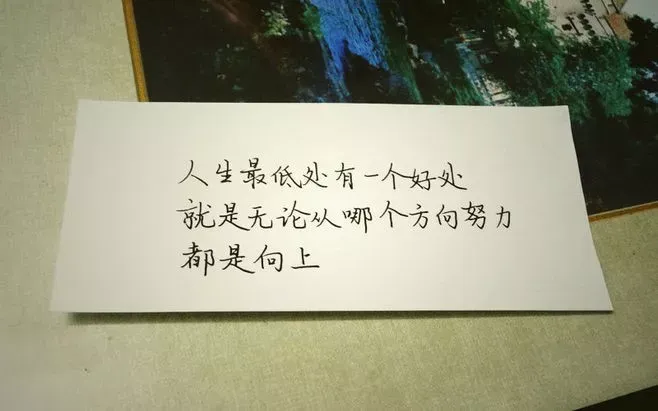 人生最低处有一个好处
就是无论从哪个方向努力
都是向上